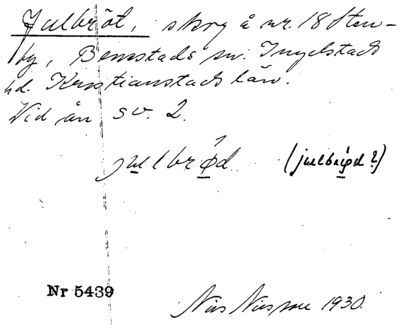 Julbröt, skog å nr. 18 Sten-
by, Benestads sn. Ingelstads
hd. Kristianstads län.
Vid ån sv. 2.
julbrǿd (julbrǿd ?)
Nr 5439
Nils Nilsson 1930.